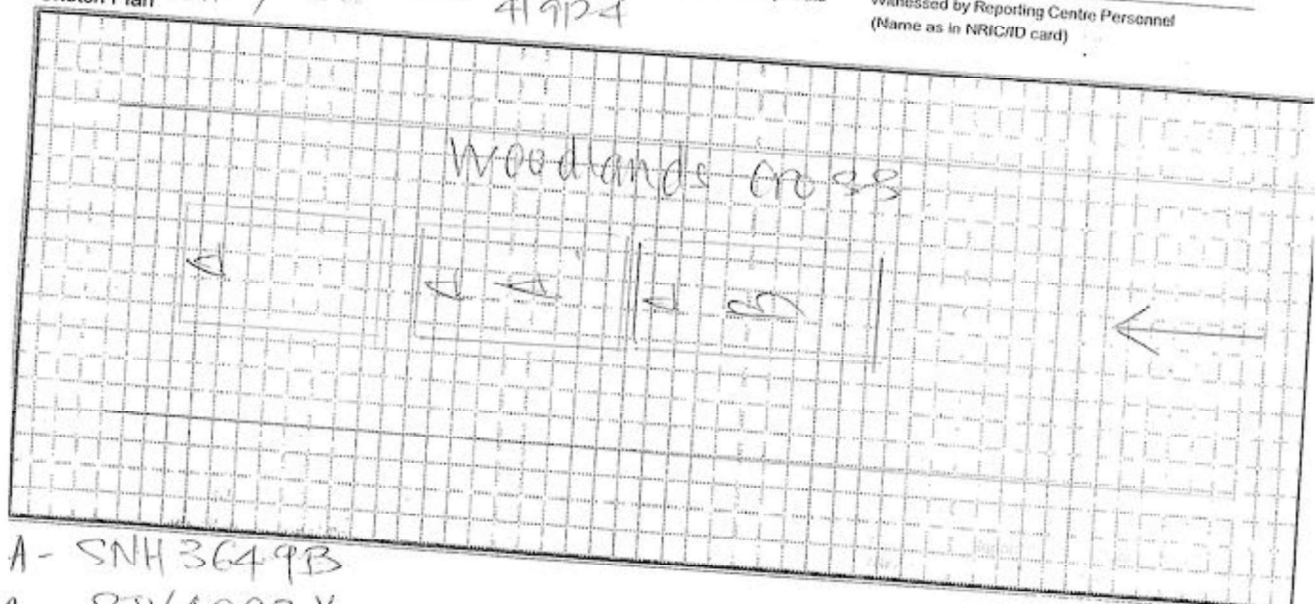 Sketch Plan
4/9/24
Witnessed by Reporting Centre Personnel
(Name as in NRIC/ID card)
Woodlands Cross
A
B
A - SNH3649B